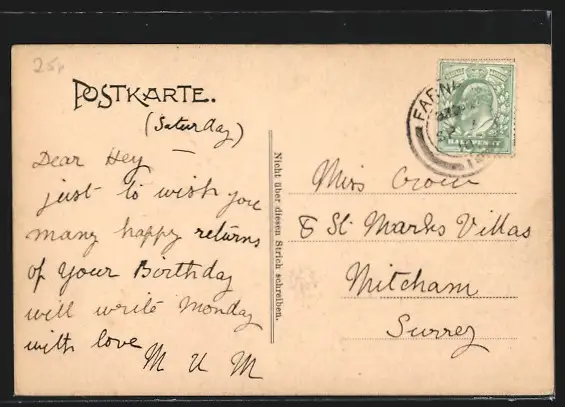 25p
POSTKARTE.
(Saturday)
Dear Hey —
just to wish you
many happy returns
of your Birthday
will write Monday
with love
M U M
Nicht über diesen Strich schreiben.
HALFPENNY
Miss
8 St. Marks Villas
Mitcham
Surrey